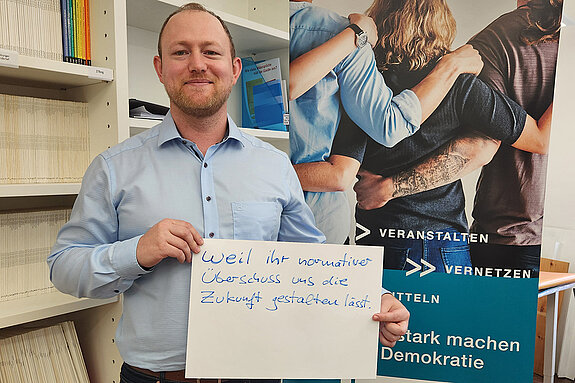 weil ihr normativer
Überschuss uns die
Zukunft gestalten lässt.
>> VERANSTALTEN
>> VERNETZEN
ITTELN
stark machen
Demokratie